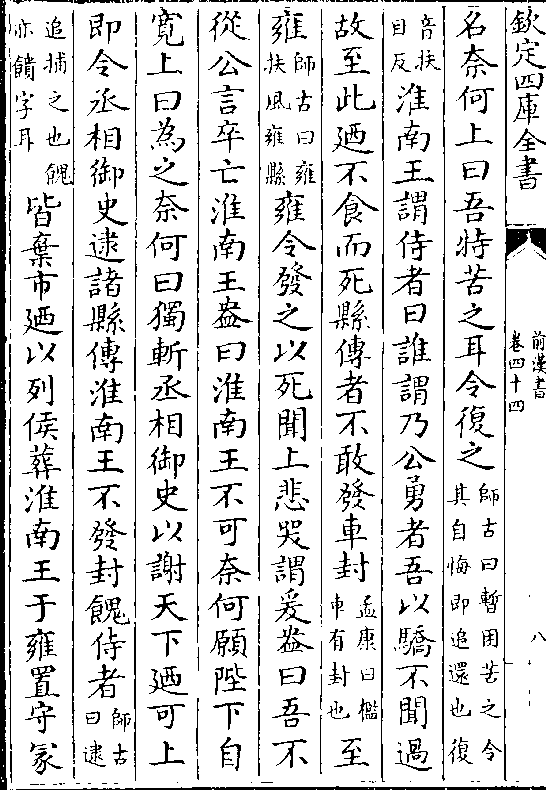 欽定四庫全書
前漢書
卷四十四
八
名奈何上曰吾特苦之耳令復之師古曰暫困苦之令其自悔即追還也復
音扶目反淮南王謂侍者曰誰謂乃公勇者吾以驕不聞過
故至此廼不食而死縣傳者不敢發車封孟康曰檻車有封也至
雍師古曰雍扶風雍縣雍令發之以死聞上悲哭謂爰盎曰吾不
從公言卒亡淮南王盎曰淮南王不可奈何願陛下自
寛上曰為之奈何曰獨斬丞相御史以謝天下廼可上
即令丞相御史逮諸縣傳淮南王不發封餽侍者師古曰逮
追捕之也餽亦饋字耳皆棄市廼以列侯葬淮南王于雍置守冢